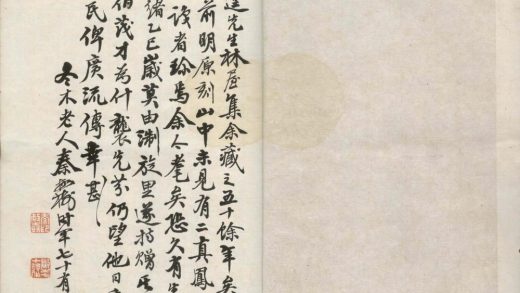 逵先生林屋集余藏之五十餘年矣
前明原刻山中未見有二真鳳
者珍焉余今耄矣恐久有
緒乙巳歲莫由淛旋里遂持贈
伯茂才為什襲先芬仍望他日
民俾廣流傳幸甚
冬木老人秦敏樹時年七十有